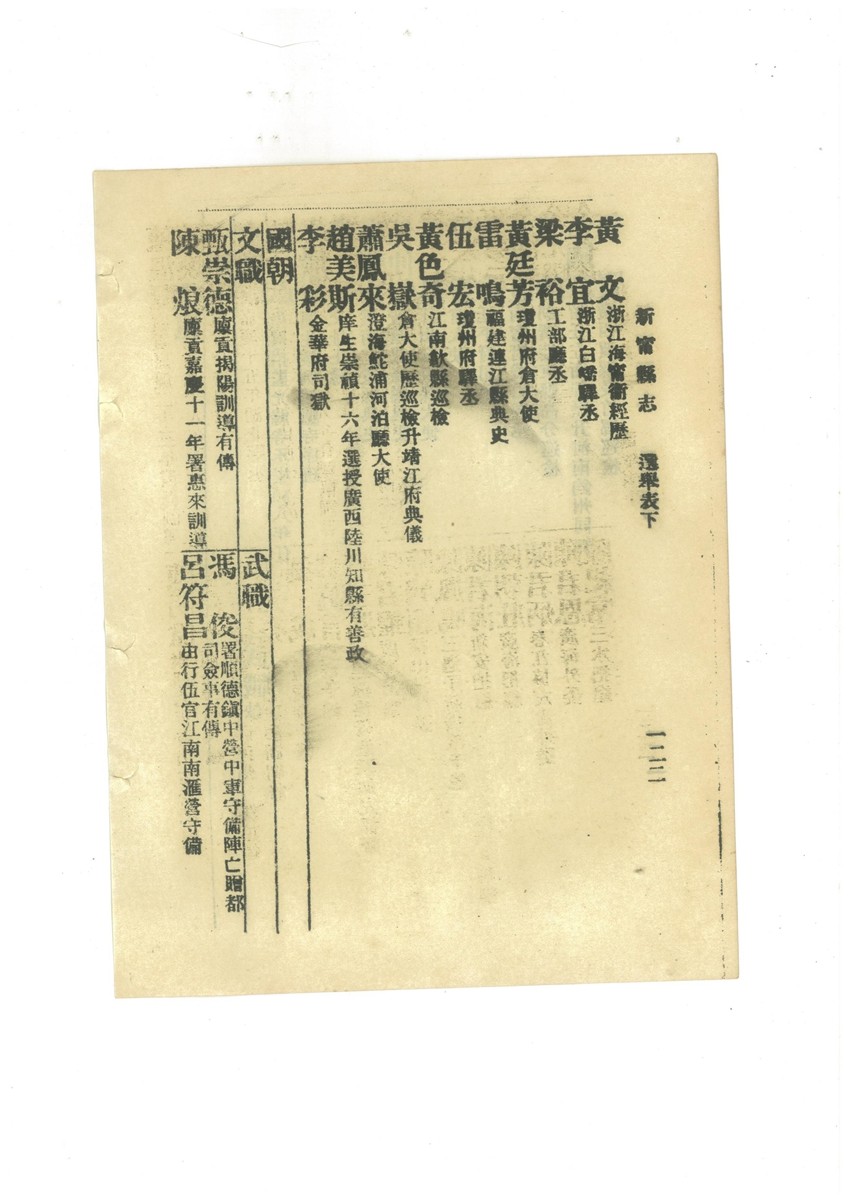 新甯縣志 選舉表下 一二二
黃文 浙江海甯衞經歷
李宜 浙江白嶠驛丞
梁裕 工部廳丞
黃廷芳 瓊州府倉大使
雷鳴 福建連江縣典史
伍宏 瓊州府驛丞
黃色奇 江南歙縣巡檢
吳嶽 倉大使歷巡檢升靖江府典儀
蕭鳳來 澄海鮀浦河泊廳大使
趙美斯 庠生崇禎十六年選授廣西陸川知縣有善政
李彩 金華府司獄
國朝
文職
甄崇德 廩貢揭陽訓導有傳
陳烺 廩貢嘉慶十一年署惠來訓導
武職
馮俊 署順德鎭中營中軍守備陣亡贈都
司僉事有傳
呂符昌 由行伍官江南南滙營守備